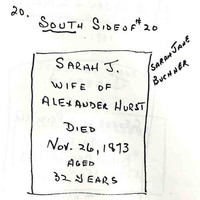 20.
SOUTH SIDE OF #20
SARAH J.
WIFE OF
ALEXANDER HURST
DIED
NOV. 26, 1873
AGED
32 YEARS
SARAH JANE
BUCHNER